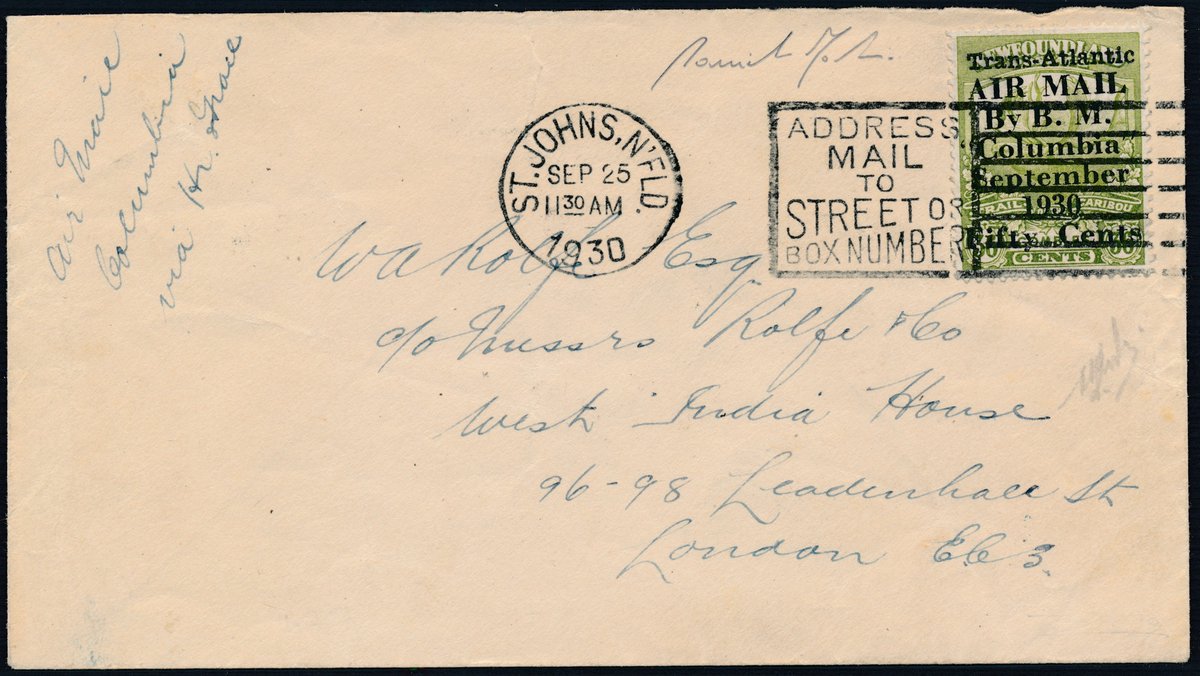 Air Mail
Columbia
via Hr. Grace
ST. JOHNS, N'F'LD.
SEP 25
11 30 AM
1930
ADDRESS
MAIL
TO
STREET OR
BOX NUMBER
NEWFOUNDLAND
Trans-Atlantic
AIR MAIL
By B. M.
"Columbia"
September
1930
Fifty Cents
CARIBOU
CENTS
W A Rolfe Esq
c/o Messrs Rolfe & Co
West India House
96-98 Leadenhall St
London E.C. 3.